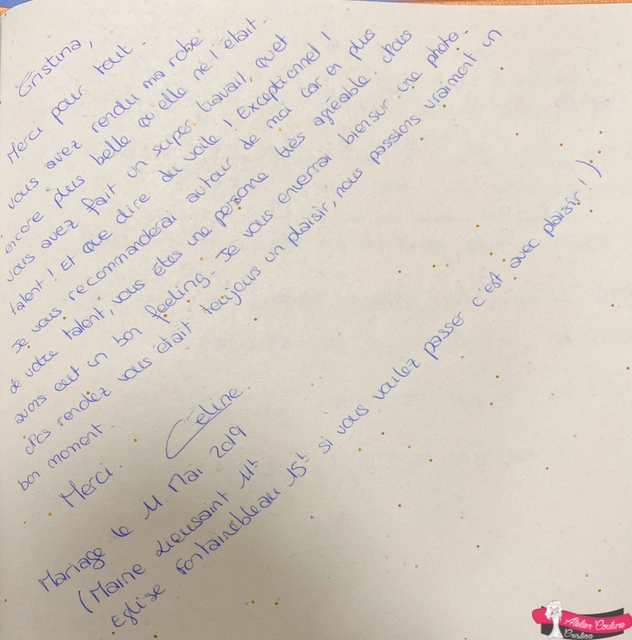 Cristina,
Merci pour tout.
Vous avez rendu ma robe
encore plus belle qu'elle ne l'était.
Vous avez fait un super travail, quel
talent ! Et que dire du voile ! Exceptionnel !
Je vous recommanderai autour de moi car en plus
de votre talent, vous êtes une personne très agréable. Nous
avons eut un bon feeling. Je vous enverrai biensur une photo.
Nos rendez vous était toujours un plaisir, nous passions vraiment un
bon moment.
Merci. Céline.
Mariage le 11 Mai 2019
(Mairie Lieusaint 11h
Eglise Fontainebleau 15h si vous voulez passer c'est avec plaisir !)
Atelier Couture
Cristina